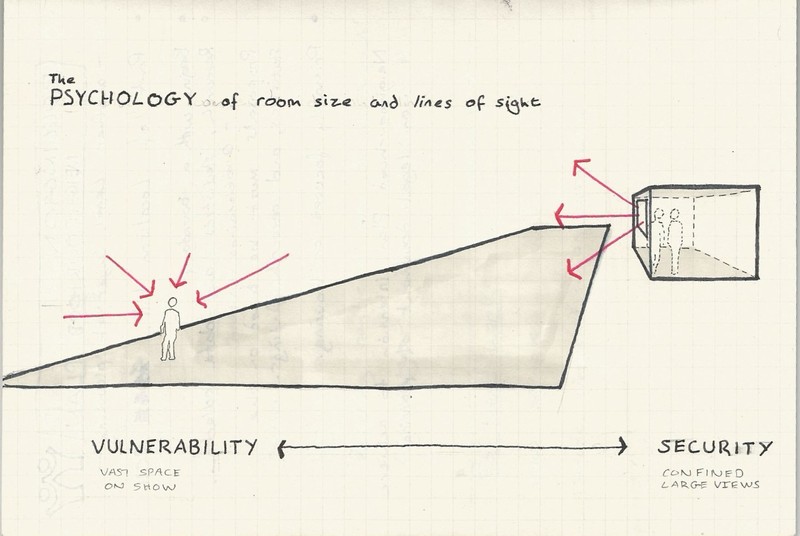 The
PSYCHOLOGY of room size and lines of sight
VULNERABILITY
VAST SPACE
ON SHOW
SECURITY
CONFINED
LARGE VIEWS